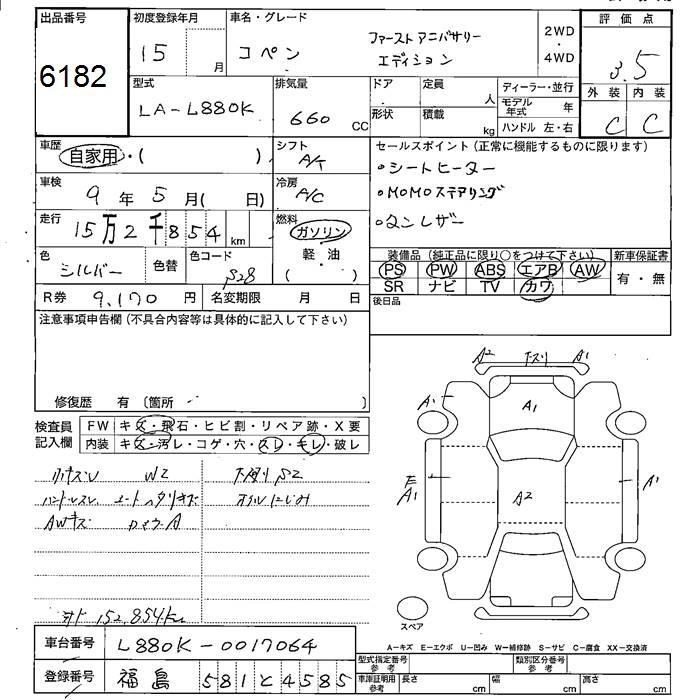 出品番号
6182
初度登録年月
15 月
車名・グレード
コペン ファーストアニバサリー
エディション
2WD
・
4WD
評価点
3.5
外装 内装
C C
型式
LA-L880K
排気量
660 CC
ドア
・
形状
定員
人
積載
kg
ディーラー・並行
モデル年式 年
ハンドル 左・右
車歴
自家用・( )
シフト
A/T
車検
9 年 5 月( 日)
冷房
A/C
走行
15万2千854 km
燃料
ガソリン
軽・油
( )
色
シルバー
色替
色コード
S28
R券 9,170 円
名変期限 月 日
セールスポイント(正常に機能するものに限ります)
・シートヒーター
・MOMOステアリング
・タンレザー
装備品(純正品に限り○をつけて下さい)
PS PW ABS エアB AW
SR ナビ TV カワ
新車保証書
有・無
後日品
注意事項申告欄(不具合内容等は具体的に記入して下さい)
修復歴 有(箇所 )
検査員
記入欄
FW キズ・飛石・ヒビ割・リペア跡・X要
内装 キズ・汚レ・コゲ・穴・スレ・キレ・破レ
W2
下廻りS2
ハンドルスレ
オイルにじみ
AWキズ
152,854km
A2 A1
A1
A1
A1
A1
A2
スペア
A-キズ E-エクボ U-凹み W-補修跡 S-サビ C-腐食 XX-交換済
車台番号 L880K-0017064
登録番号 福島 581 と 4585
型式指定番号
参考
類別区分番号
参考
車庫証明用
参考
長さ cm 幅 cm 高さ cm